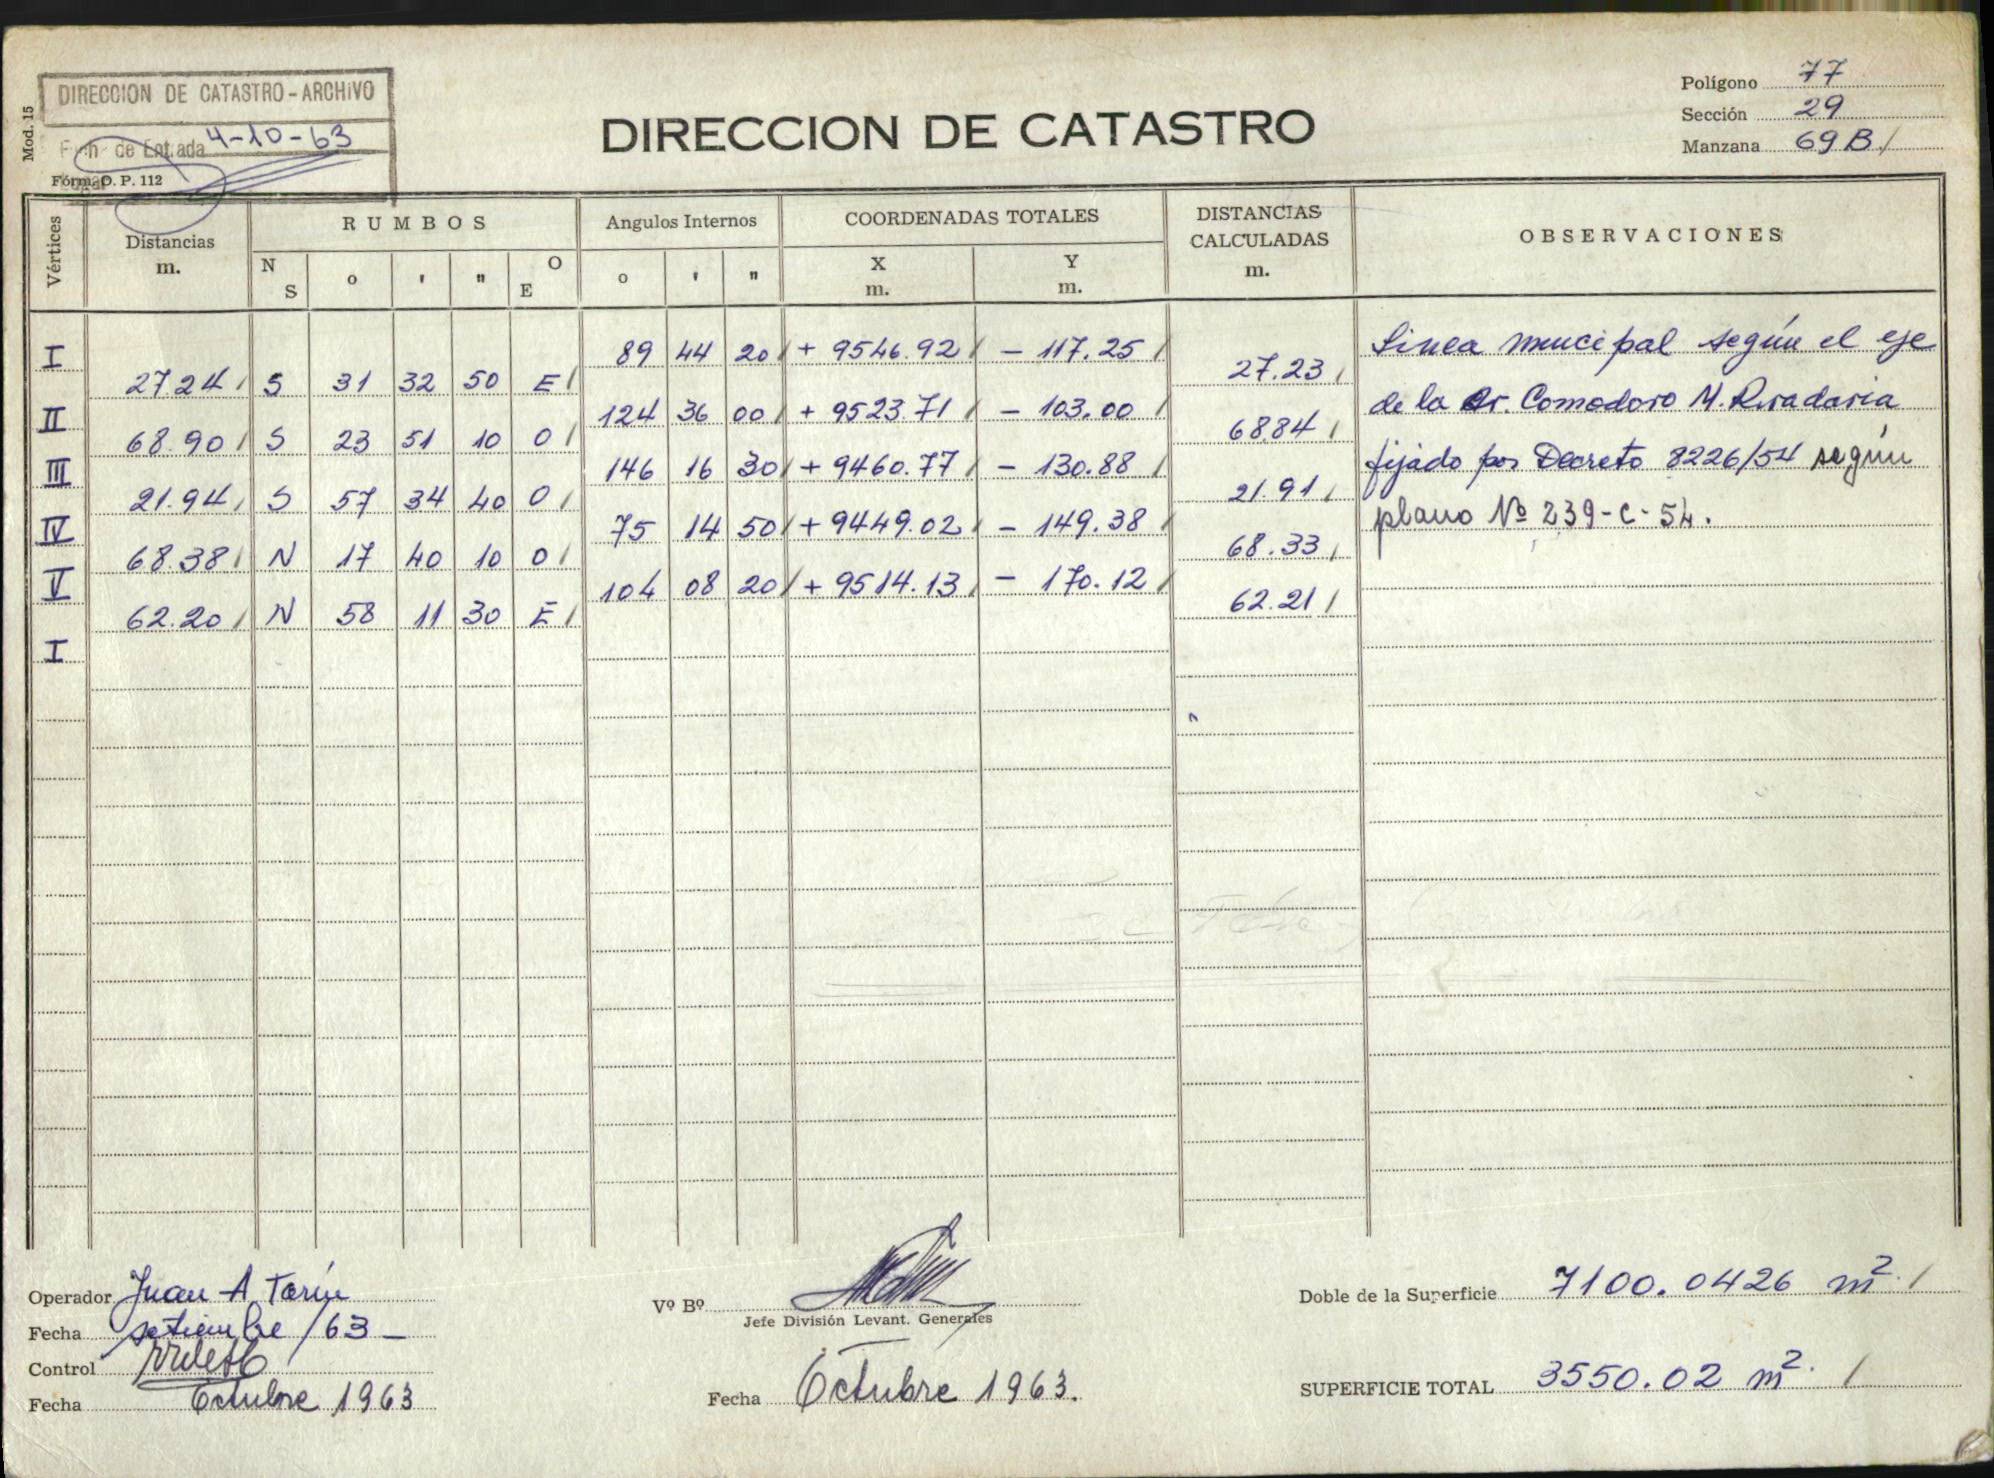 Mod. 15
DIRECCION DE CATASTRO-ARCHIVO
de Entrada 4-10-63
Fórm. O. P. 112
DIRECCION DE CATASTRO
Polígono 77
Sección 29
Manzana 69 B /
Vértices
Distancias m.
RUMBOS
N S o ' " O E
Angulos Internos
o ' "
COORDENADAS TOTALES
X m. Y m.
DISTANCIAS CALCULADAS m.
OBSERVACIONES
I 89 44 20 / + 9546.92 / - 117.25 /
27.24 / S 31 32 50 E / 27.23 /
II 124 36 00 / + 9523.71 / - 103.00 /
68.90 / S 23 51 10 O / 68.84 /
III 146 16 30 / + 9460.77 / - 130.88 /
21.94 / S 57 34 40 O / 21.91 /
IV 75 14 50 / + 9449.02 / - 149.38 /
68.38 / N 17 40 10 O / 68.33 /
V 104 08 20 / + 9514.13 / - 170.12 /
62.20 / N 58 11 30 E / 62.21 /
I
Linea municipal según el eje
de la Av. Comodoro M. Rivadavia
fijado por Decreto 8226/54 según
plano Nº 239-C-54.
Operador Juan A. Tarín
Fecha setiembre /63-
Control
Fecha Octubre 1963
Vº Bº
Jefe División Levant. Generales
Fecha Octubre 1963.
Doble de la Superficie 7100.0426 m². /
SUPERFICIE TOTAL 3550.02 m². /